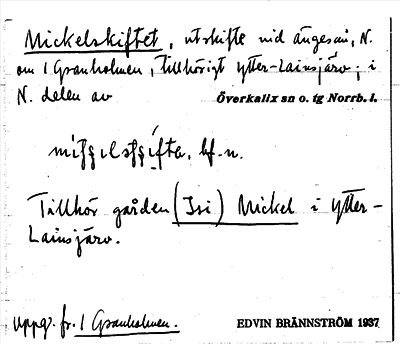 Mickelskiftet, utskifte vid ängesån, N.
om 1 Granholmen, tillhörigt Ytter-Lainsjärv; i
N. delen av Överkalix sn o. tg Norrb. l.
bf. n.
Tillhör gården (Isi) Mickel i Ytter-
Lainsjärv.
Uppg. fr. 1 Granholmen. EDVIN BRÄNNSTRÖM 1937